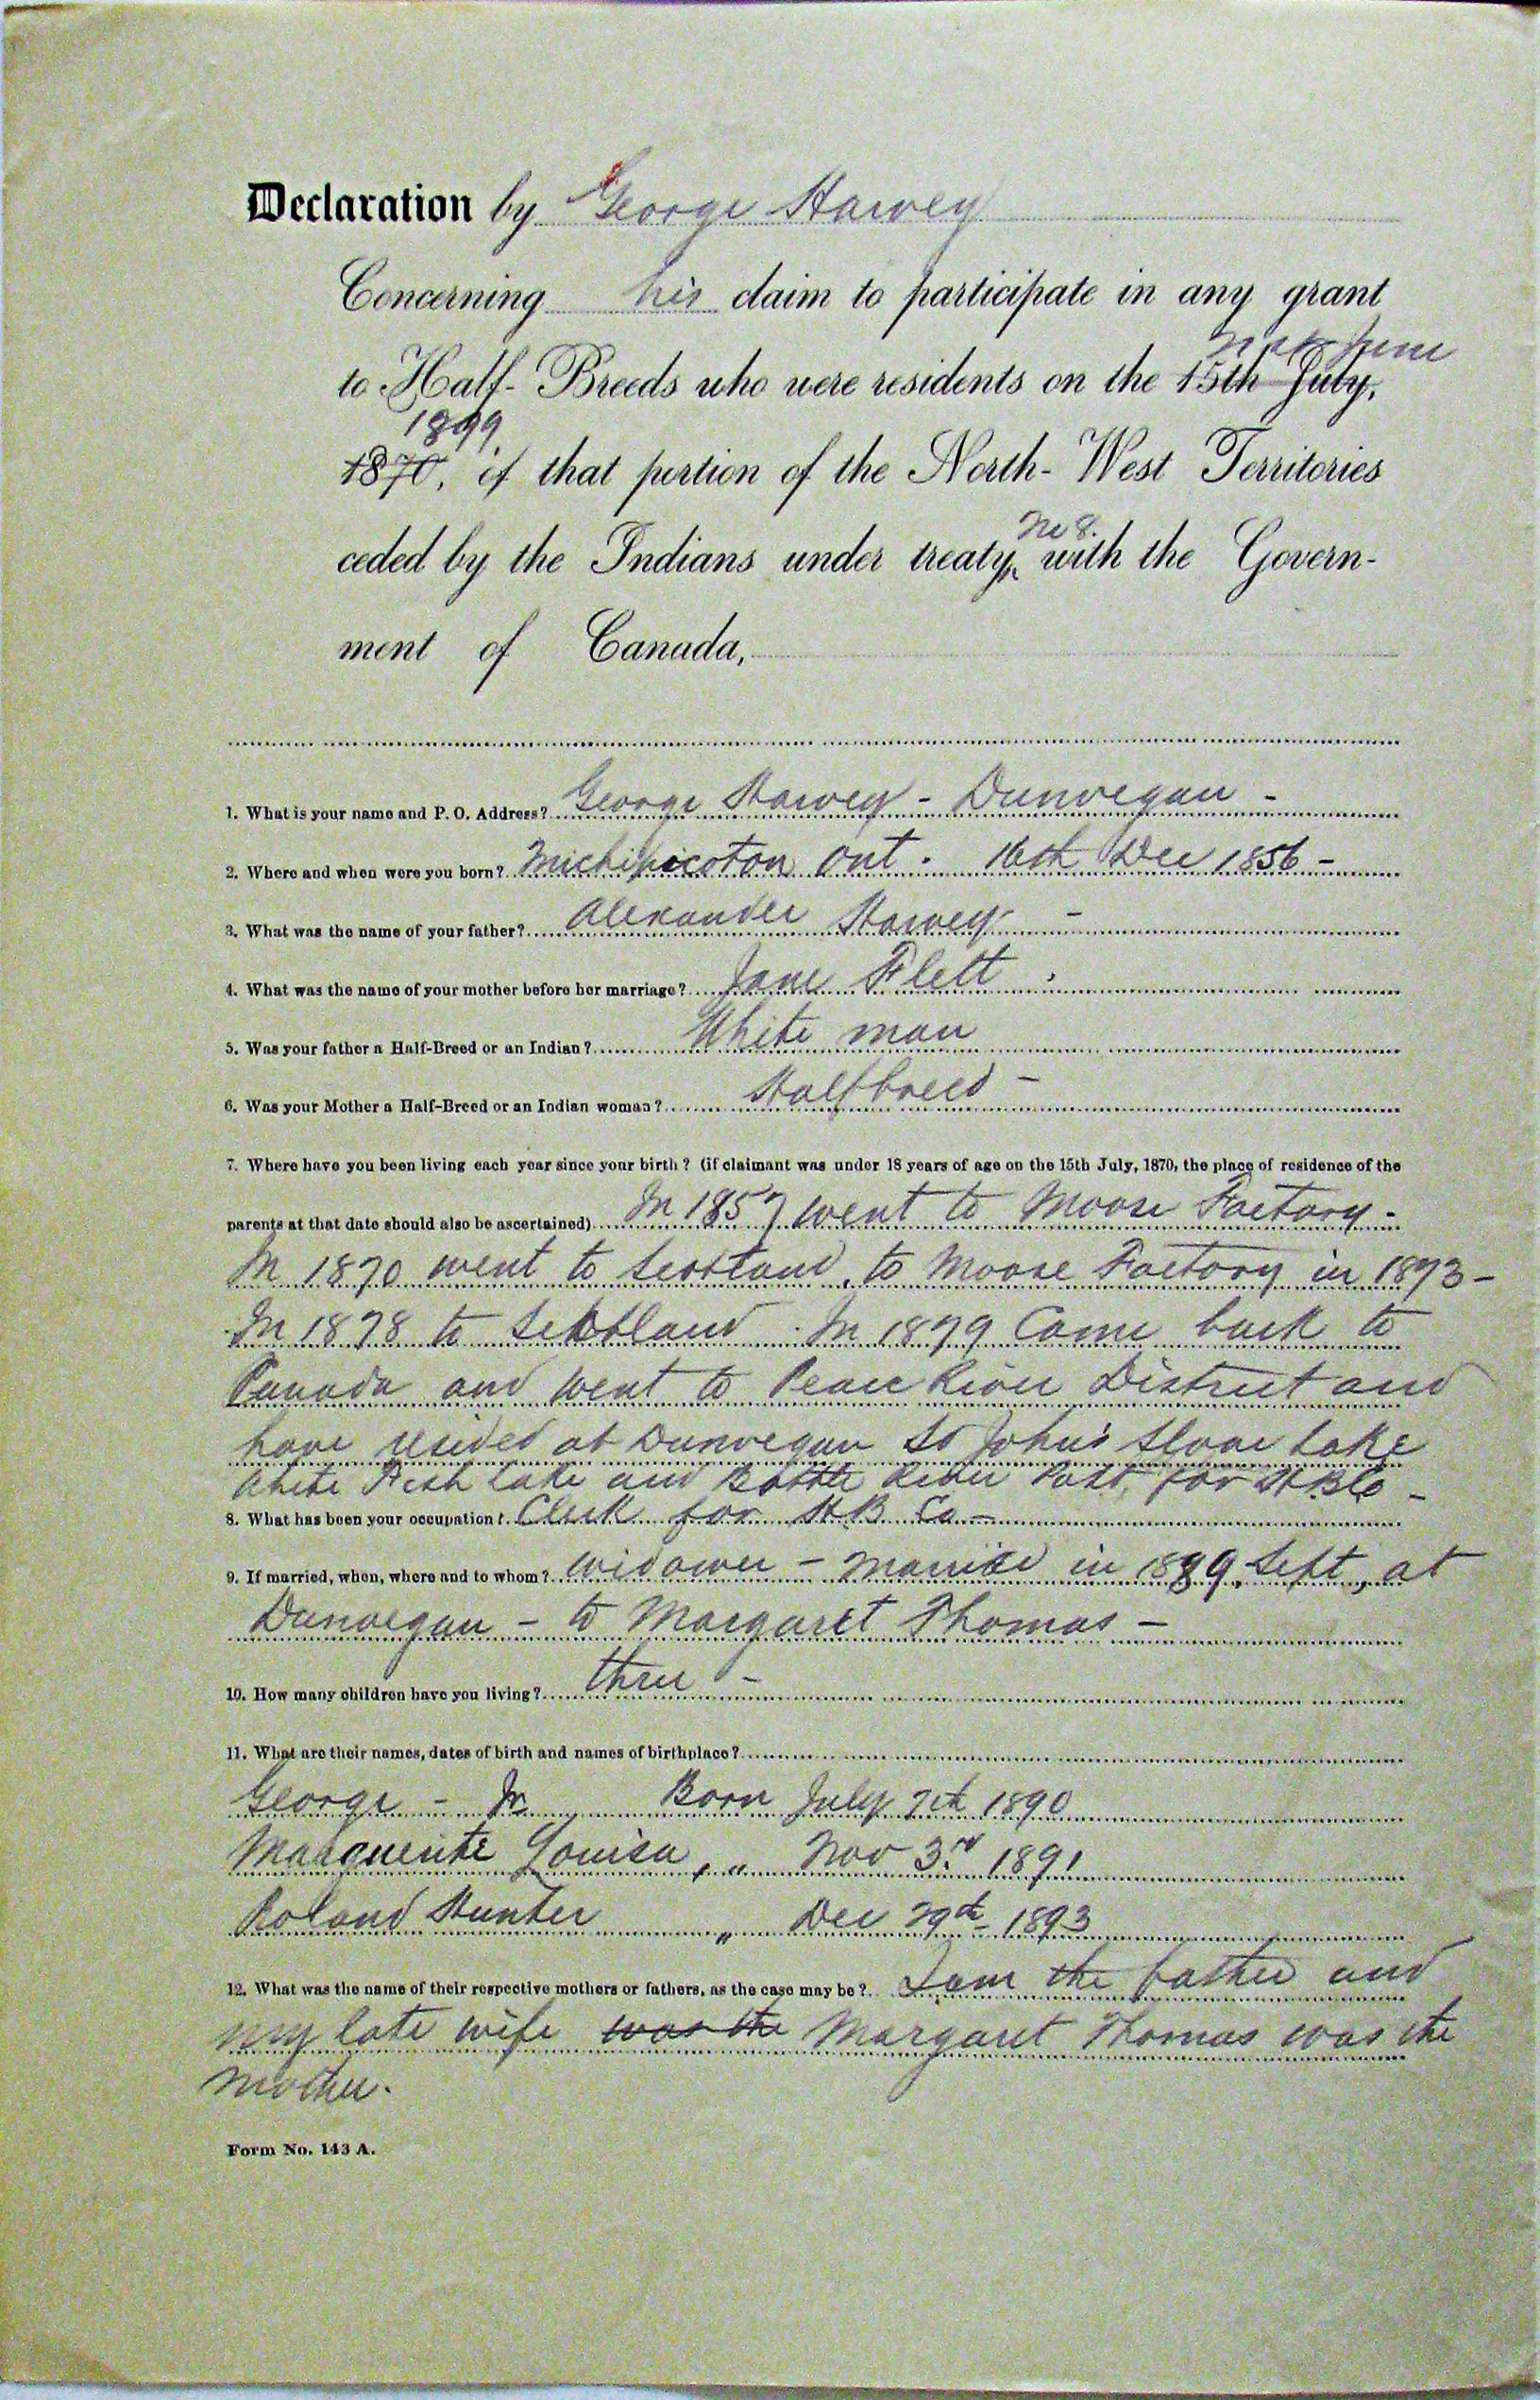 Declaration by George Harvey
Concerning his claim to participate in any grant
June
to Half-Breeds who were residents on the 15th July,
1899
1870, of that portion of the North-West Territories
No 8.
ceded by the Indians under treaty with the Govern-
ment of Canada,
1. What is your name and P. O. Address? George Harvey - Dunvegan -
2. Where and when were you born? Michipicoton Ont. 16th Dec 1856 -
3. What was the name of your father? Alexander Harvey -
4. What was the name of your mother before her marriage? Jane Flett
5. Was your father a Half-Breed or an Indian? White man
6. Was your Mother a Half-Breed or an Indian woman? Halfbreed -
7. Where have you been living each year since your birth? (if claimant was under 18 years of age on the 15th July, 1870, the place of residence of the
parents at that date should also be ascertained) In 1857 went to Moose Factory -
In 1870 went to Scotland, to Moose Factory in 1873 -
In 1878 to Scotland. In 1879 Came back to
Canada and went to Peace River District and
have resided at Dunvegan St John's Slave Lake
White Fish Lake and Battle River Post, for HBCo -
8. What has been your occupation? Clerk for H.B. Co -
9. If married, when, where and to whom? Widower - Married in 1889 Sept, at
Dunvegan - to Margaret Thomas -
10. How many children have you living? three -
11. What are their names, dates of birth and names of birthplace?
George - Jr Born July 7th 1890
Marguerite Louisa, " Nov 3rd 1891
Roland Hunter " Dec 29th 1893
12. What was the name of their respective mothers or fathers, as the case may be? I am the father and
my late wife was the Margaret Thomas was the
mother.
Form No. 143 A.